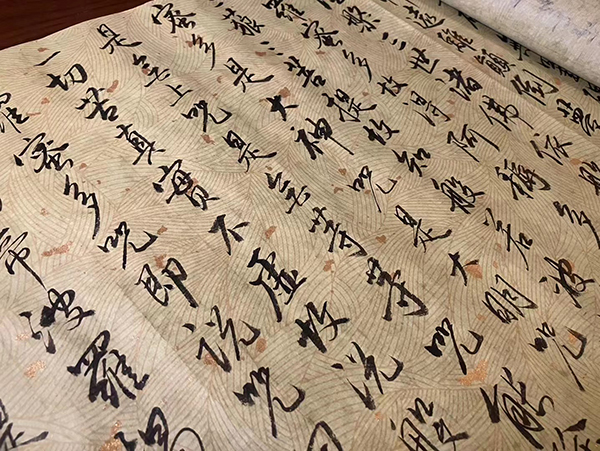 遠離顛倒
槃三世諸佛依般
羅蜜多故得阿耨多
藐三菩提故知般若波
蜜多是大神咒是大明咒
是无上咒是无等等咒能
一切苦真實不虛故说般
羅蜜多咒即说咒曰
帝波羅揭